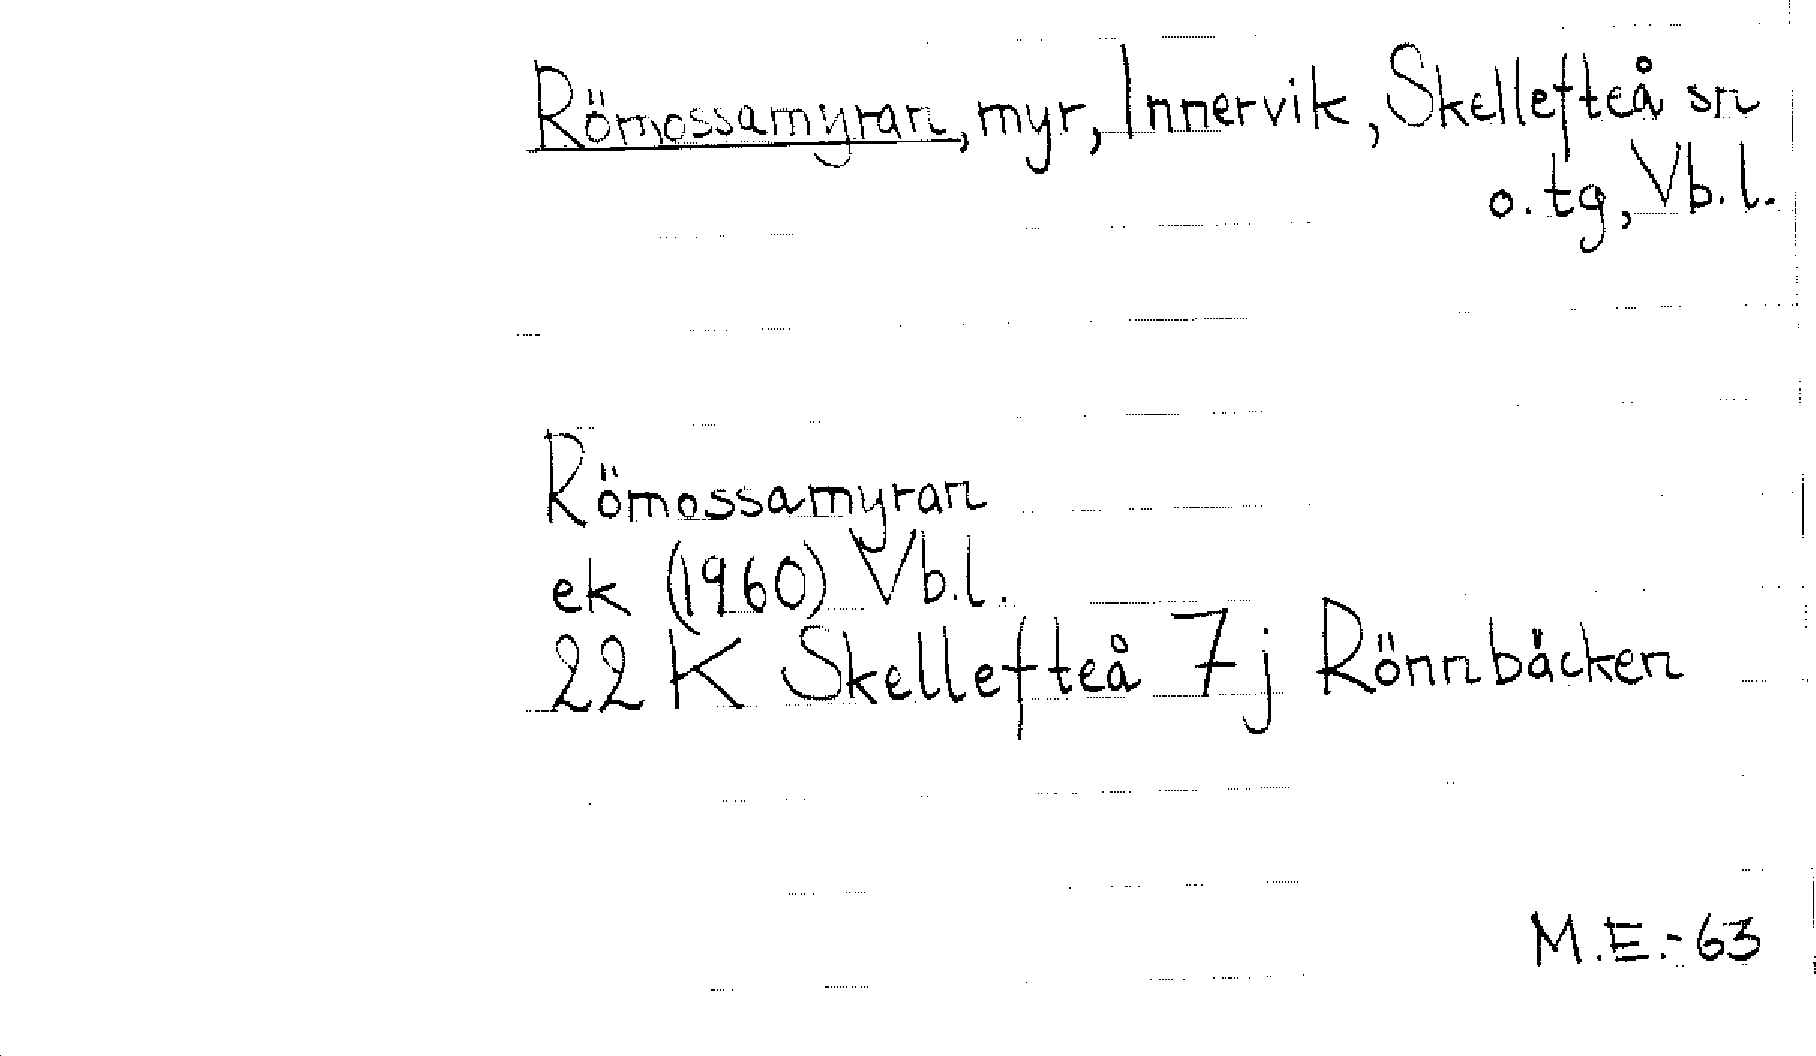 Römossamyran, myr, Innervik, Skellefteå sn
o. tg, Vb. l.
Römossamyran
ek (1960) Vb. l.
22 K Skellefteå 7 j Rönnbäcken
M.E.-63